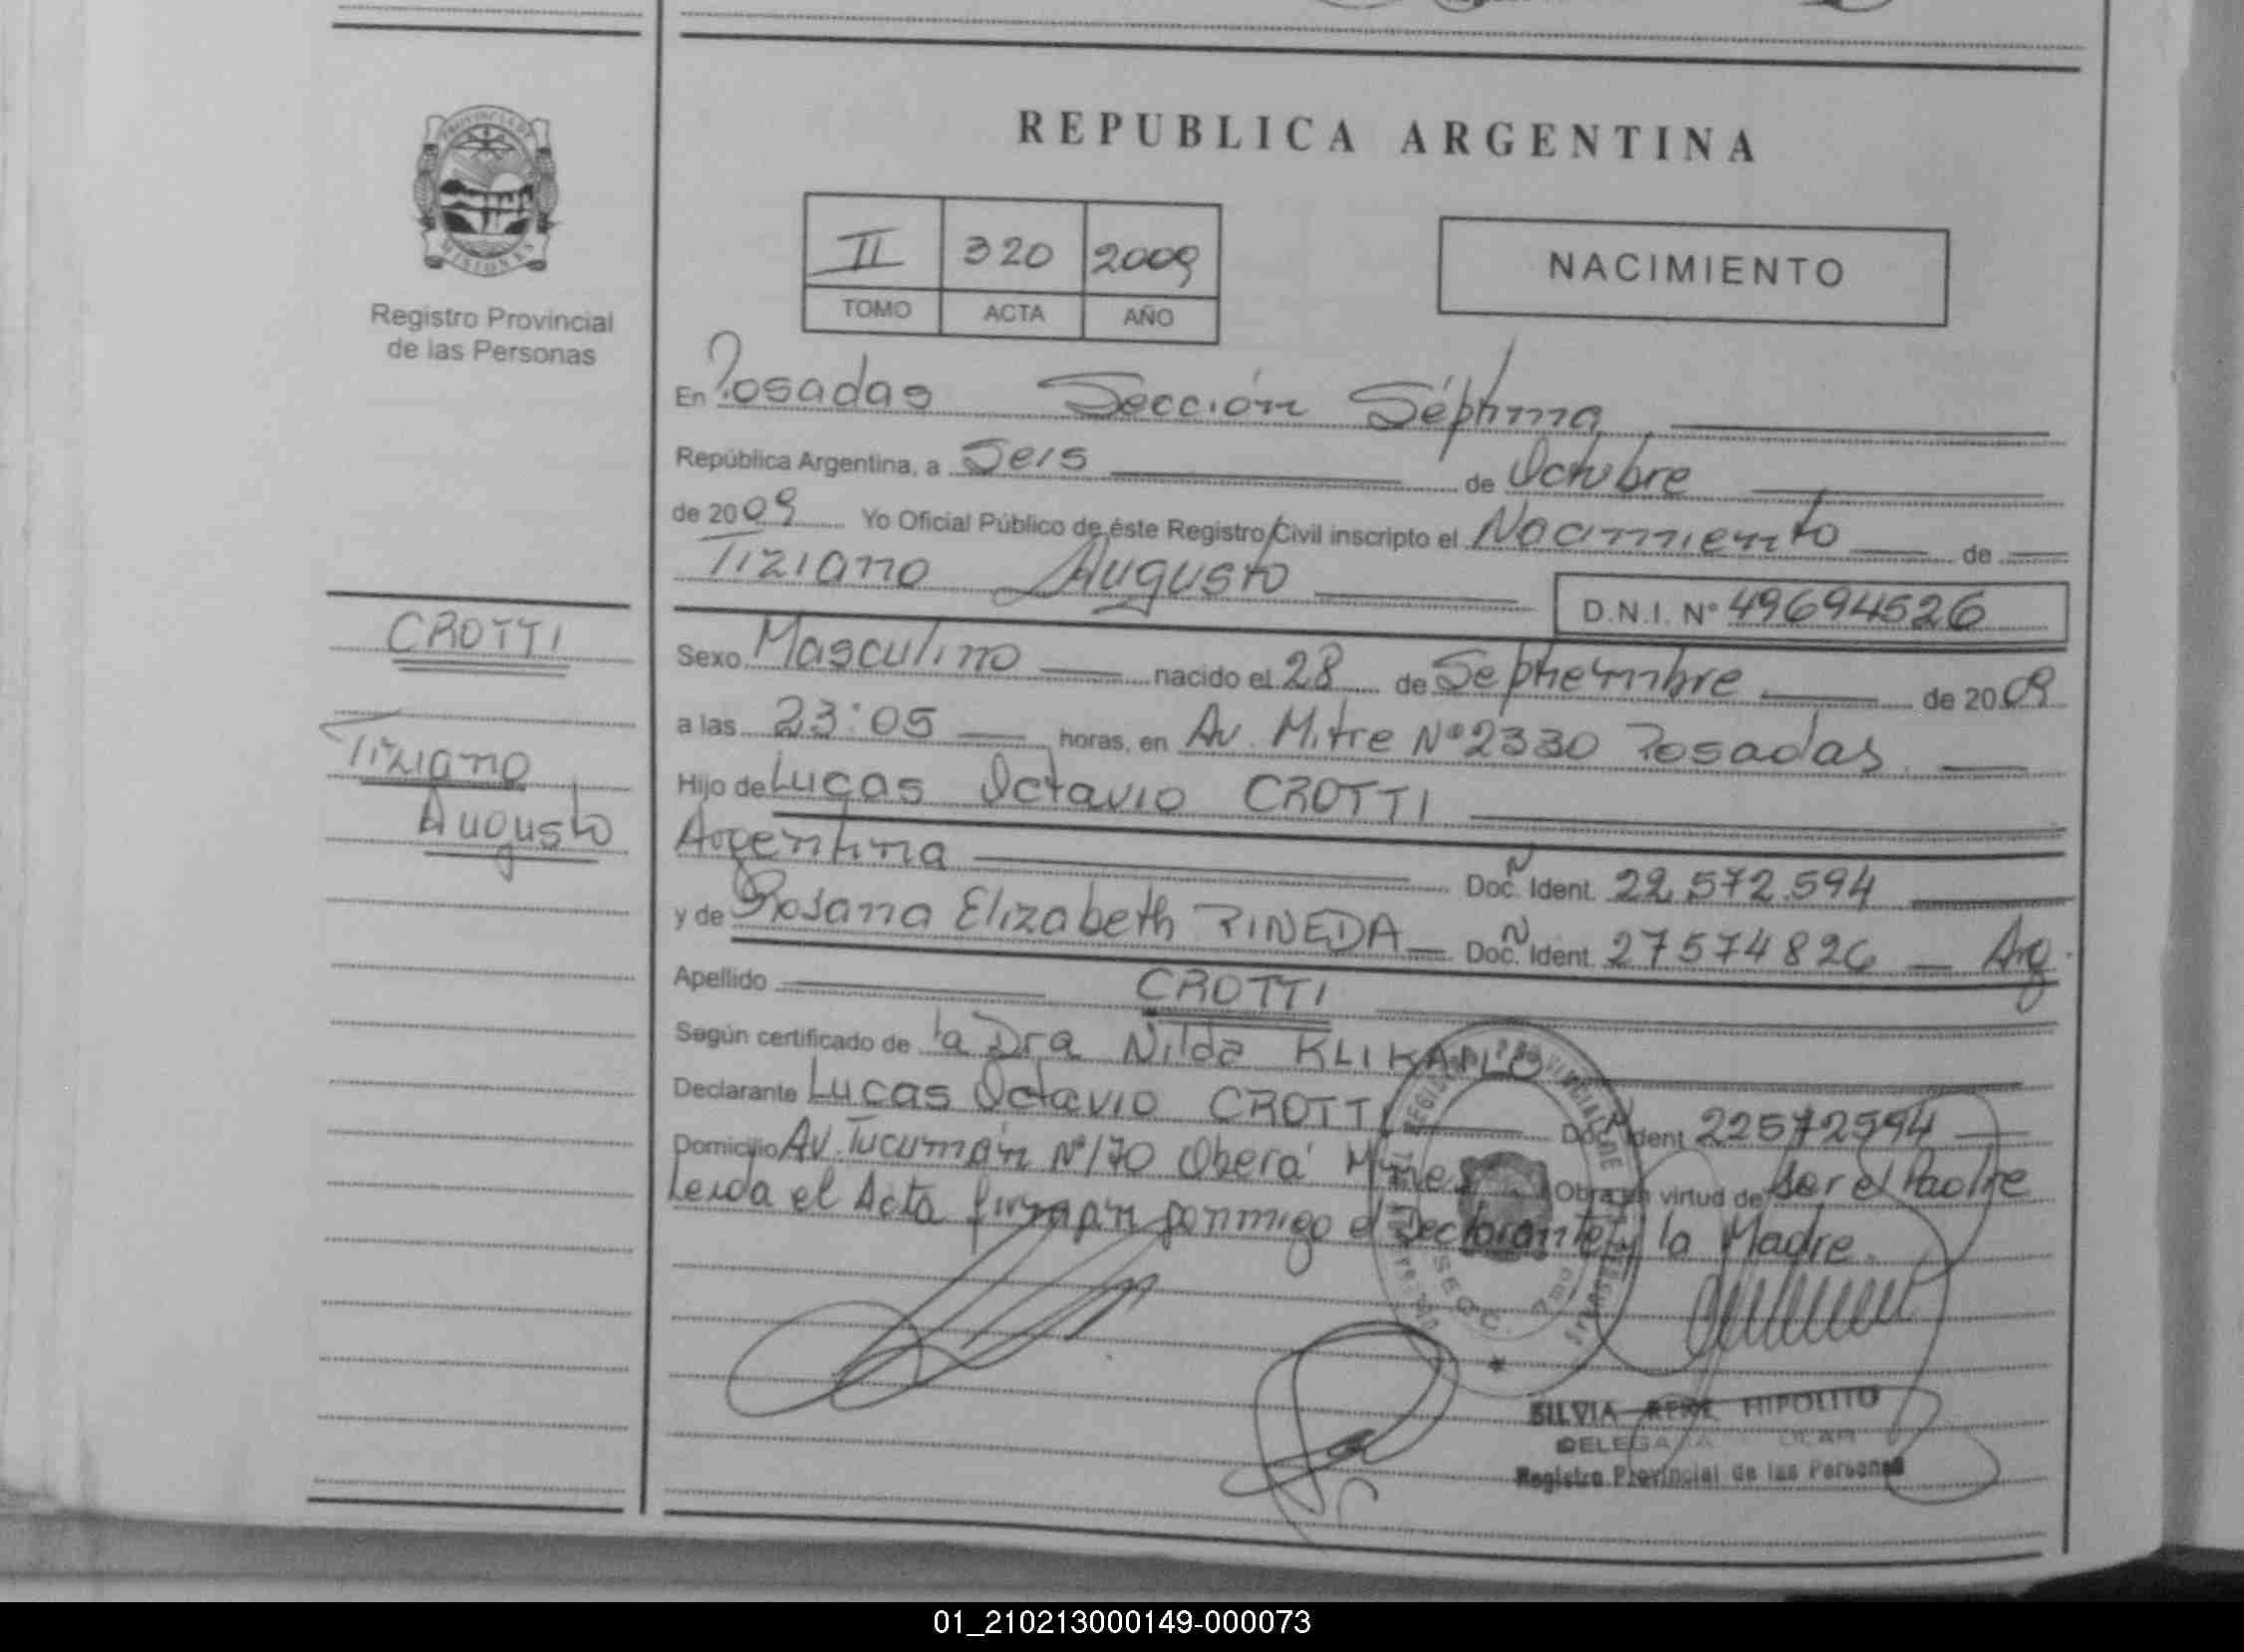 PROVINCIA DE
MISIONES
Registro Provincial
de las Personas
CROTTI
Tiziano
Augusto
REPUBLICA ARGENTINA
II 320 2009
TOMO ACTA AÑO
NACIMIENTO
En Posadas Sección Séptima
República Argentina, a Seis de Octubre
de 2009 Yo Oficial Público de éste Registro Civil inscripto el Nacimiento de
Tiziano Augusto D.N.I. Nº 49694526
Sexo Masculino nacido el 28 de Septiembre de 2009
a las 23:05 horas, en Av. Mitre Nº 2330 Posadas
Hijo de Lucas Octavio CROTTI
Argentina Doc. N Ident. 22.572.594
y de Rosana Elizabeth PINEDA Doc. N Ident. 27574826 Arg.
Apellido CROTTI
Según certificado de la Dra Nilda
Declarante Lucas Octavio CROTTI Doc. N Ident 22572594
Domicilio Av. Tucumán Nº 170 Oberá Mnes Obra en virtud de ser el Padre
Leida el Acta firman conmigo el Declarante y la Madre.
SILVIA HIPOLITO
Registro Provincial de las Personas
01_210213000149-000073